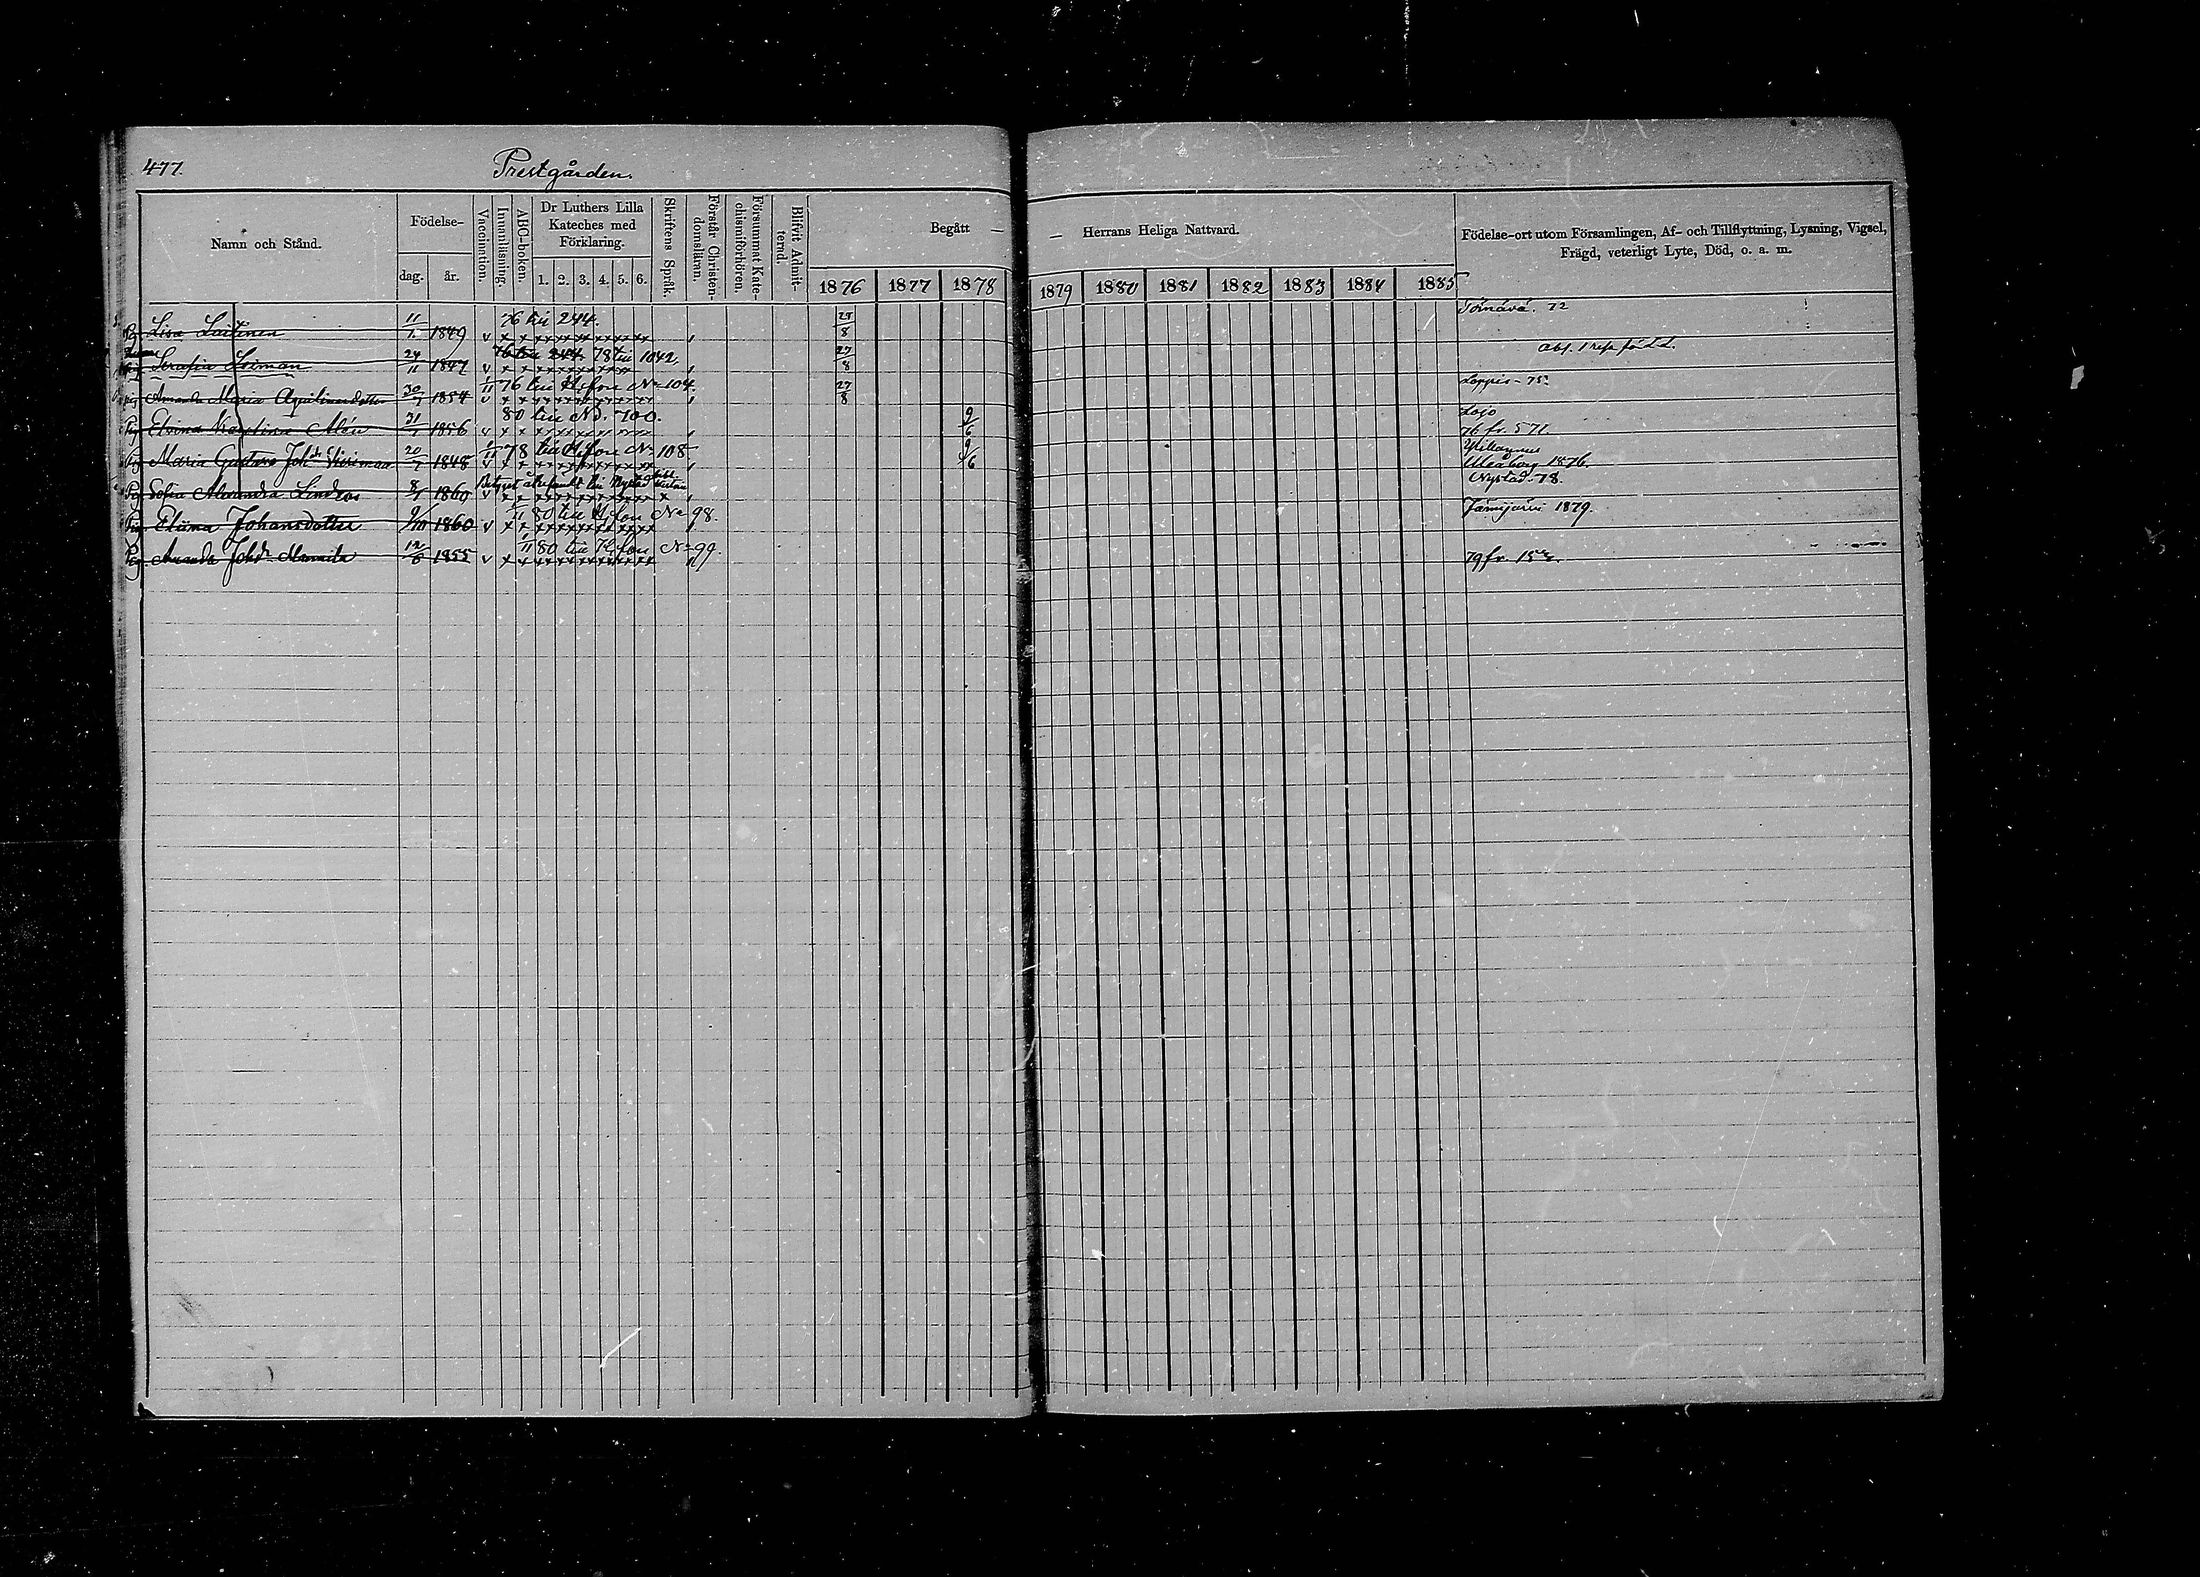 477.
Prestgården.
Namn och Stånd.
Födelse-
dag. år.
Vaccination.
Innanläsning.
ABC-boken.
Dr Luthers Lilla Kateches med Förklaring.
1. 2. 3. 4. 5. 6.
Skriftens Språk.
Förstår Christendomsläran.
Försummat Katechismiförhören.
Blifvit Admitternd.
Begått — — Herrans Heliga Nattvard.
1876 1877 1878 1879 1880 1881 1882 1883 1884 1885
Födelse-ort utom Församlingen, Af- och Tillflyttning, Lysning, Vigsel,
Frägd, veterligt Lyte, Död, o. a. m.
76 till 244.
Pig Lisa Laitinen 11/1 1849 v x x x x x x x x 27/8 Törnävä. 72
76 till 244. 78 till 1042.
Serafia 24/11 1847 v x x x x x x x x 27/8 abs. 1 resa född.
1/11 76 till H:fors No 104.
pig Amanda Maria 30/7 1854 v x x x x x x x x 27/8 Loppis - 75.
80 till No. 700.
Pig Elvina Kristina Alén 31/7 1856 v x x x x x x x x 9/6 Lojo
76 fr. 571.
1/11 78 till H:fors No 108
Pig Maria Gustava Joh:dr 20/7 1848 v x x x x x x x x 9/6
Uleåborg 1876.
Betyget återsändt till Nystad
Pig Sofia Alexandra Lindros 8/7 1860 v x x x x x x x x x Nystad. 78.
1/11 80 till H:fors No 98.
Pig Eliina Johansdotter 9/10 1860 v x x x x x x x x Jämijärvi 1879.
1/11 80 till H:fors No 99.
Pig Amanda Joh:dr Mannila 12/6 1855 v x x x x x x x x 79 fr.